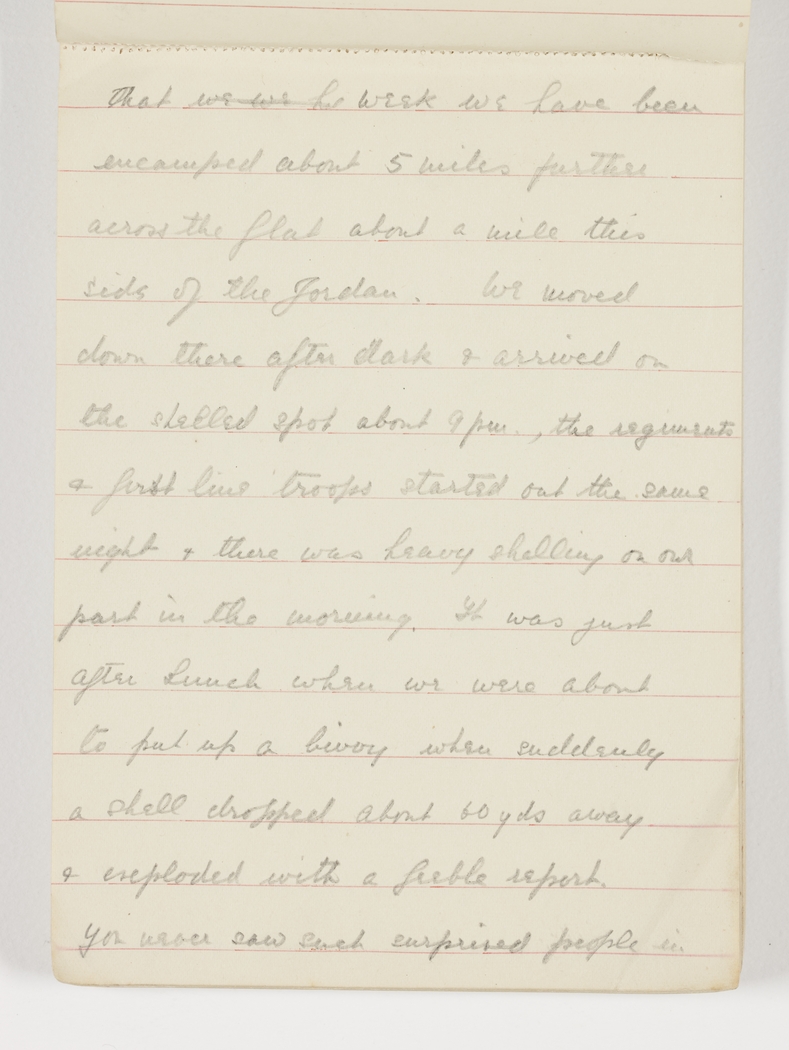 that we we he week we have been
encamped about 5 miles further
across the flat about a mile this
side of the Jordan. We moved
down there after dark & arrived on
the shelled spot about 9 pm., the regiments
& first line troops started out the same
night & there was heavy shelling on our
part in the morning. It was just
after Lunch when we were about
to put up a bivvy when suddenly
a shell dropped about 60 yds away
& exploded with a feeble report.
You never saw such surprised people in